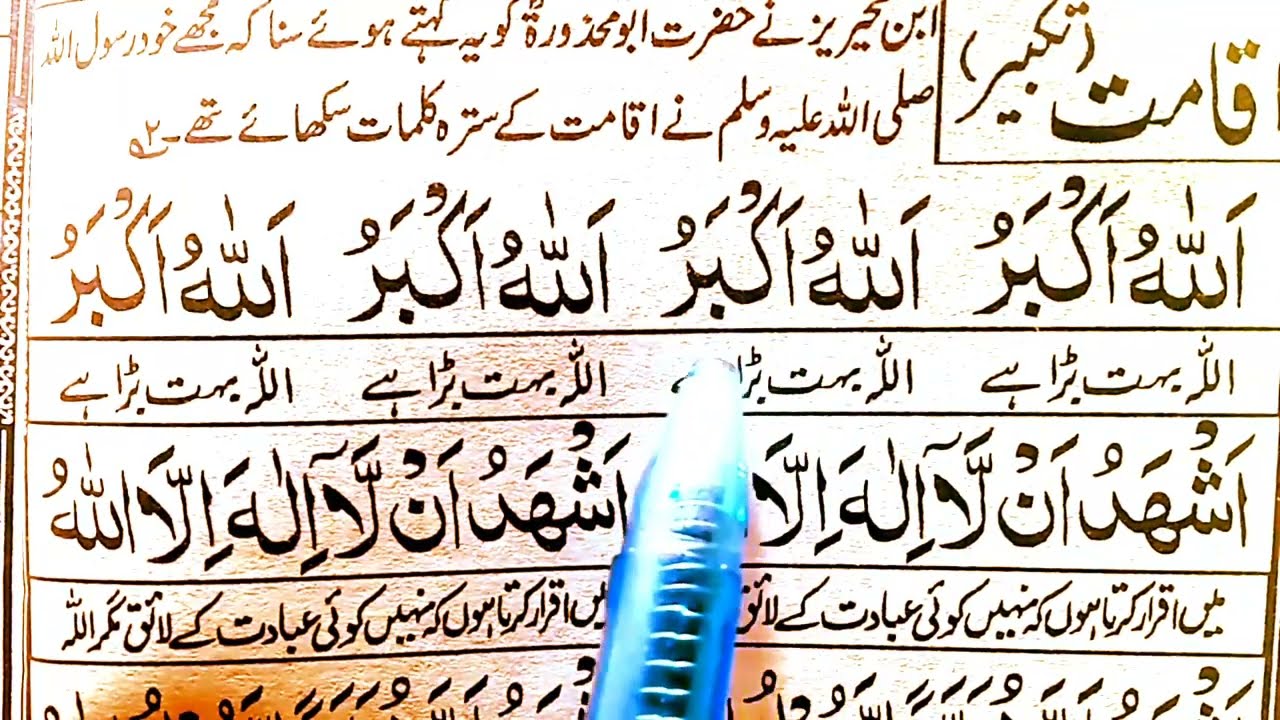 اقامت (تکبیر)
ابن محیریز نے حضرت ابو محذورۃؓ کو یہ کہتے ہوئے سنا کہ مجھے خود رسول اللہ
صلی اللہ علیہ وسلم نے اقامت کے سترہ کلمات سکھائے تھے۔۲
اَللّٰهُ اَكْبَرُ اَللّٰهُ اَكْبَرُ اَللّٰهُ اَكْبَرُ اَللّٰهُ اَكْبَرُ
اللہ بہت بڑا ہے اللہ بہت بڑا ہے اللہ بہت بڑا ہے اللہ بہت بڑا ہے
اَشْهَدُ اَنْ لَّآ اِلٰهَ اِلَّا اَشْهَدُ اَنْ لَّآ اِلٰهَ اِلَّا اللّٰهُ
میں اقرار کرتا ہوں کہ نہیں کوئی عبادت کے لائق میں اقرار کرتا ہوں کہ نہیں کوئی عبادت کے لائق مگر اللہ